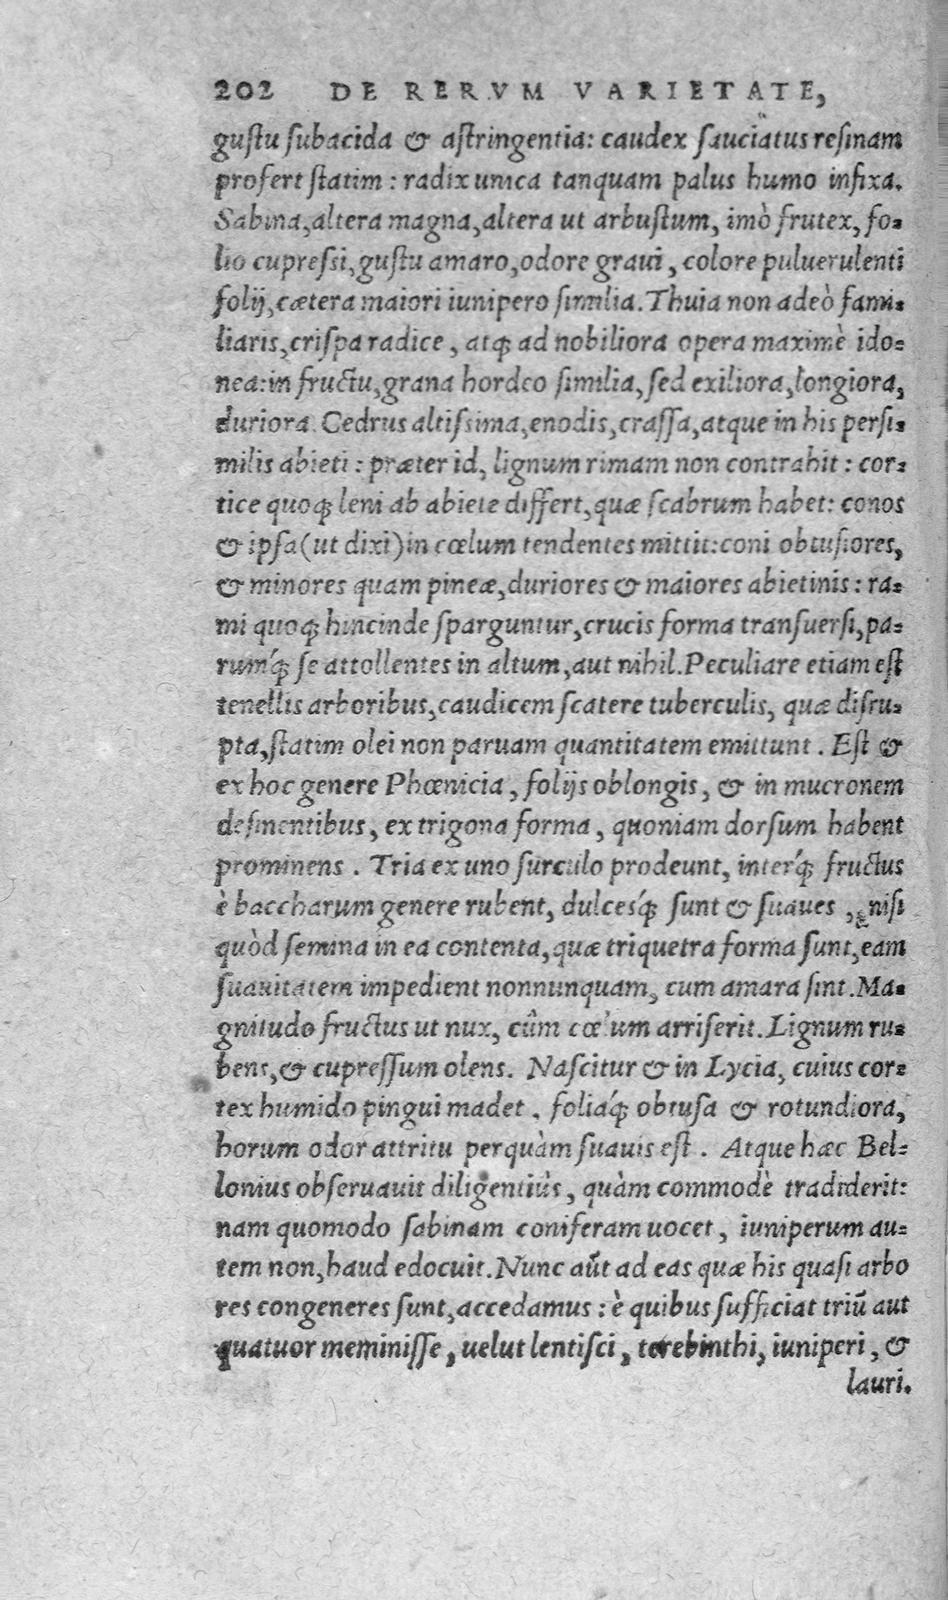 202 DE RERVM VARIETATE,
guſtu ſubacida & aſtringentia: caudex ſauciatus reſinam
profert ſtatim: radix unica tanquam palus humo infixa.
Sabina, altera magna, altera ut arbuſtum, imò frutex, fo-
lio cupreſsi, guſtu amaro, odore graui, colore puluerulenti
folij, cætera maiori iunipero ſimilia. Thuia non adeò fami-
liaris, criſpa radice, atq; ad nobiliora opera maximè ido-
nea: in fructu, grana hordeo ſimilia, ſed exiliora, longiora,
duriora. Cedrus altiſsima, enodis, craſſa, atque in his perſi-
milis abieti: præter id, lignum rimam non contrahit: cor-
tice quoq; leni ab abiete differt, quæ ſcabrum habet: conos
& ipſa (ut dixi) in cœlum tendentes mittit: coni obtuſiores,
& minores quam pineæ, duriores & maiores abietinis: ra-
mi quoq; hincinde ſparguntur, crucis forma tranſuerſi, pa-
rumq́; ſe attollentes in altum, aut nihil. Peculiare etiam eſt
tenellis arboribus, caudicem ſcatere tuberculis, quæ diſru-
pta, ſtatim olei non paruam quantitatem emittunt. Eſt &
ex hoc genere Phœnicia, folijs oblongis, & in mucronem
deſinentibus, ex trigona forma, quoniam dorſum habent
prominens. Tria ex uno ſurculo prodeunt, interq́; fructus
è baccharum genere rubent, dulcesq́; ſunt & ſuaues, niſi
quòd ſemina in ea contenta, quæ triquetra forma ſunt, eam
ſuauitatem impediunt nonnunquam, cum amara ſint. Ma-
gnitudo fructus ut nux, cûm cœlum arriſerit. Lignum ru-
bens, & cupreſſum olens. Naſcitur & in Lycia, cuius cor-
tex humido pingui madet, foliaq́; obtuſa & rotundiora,
horum odor attritu perquàm ſuauis eſt. Atque hæc Bel-
lonius obſeruauit diligentiùs, quàm commodè tradiderit:
nam quomodo ſabinam coniferam uocet, iuniperum au-
tem non, haud edocuit. Nunc aũt ad eas quæ his quaſi arbo
res congeneres ſunt, accedamus: è quibus ſufficiat triũ aut
quatuor meminiſſe, uelut lentiſci, terebinthi, iuniperi, &
lauri.